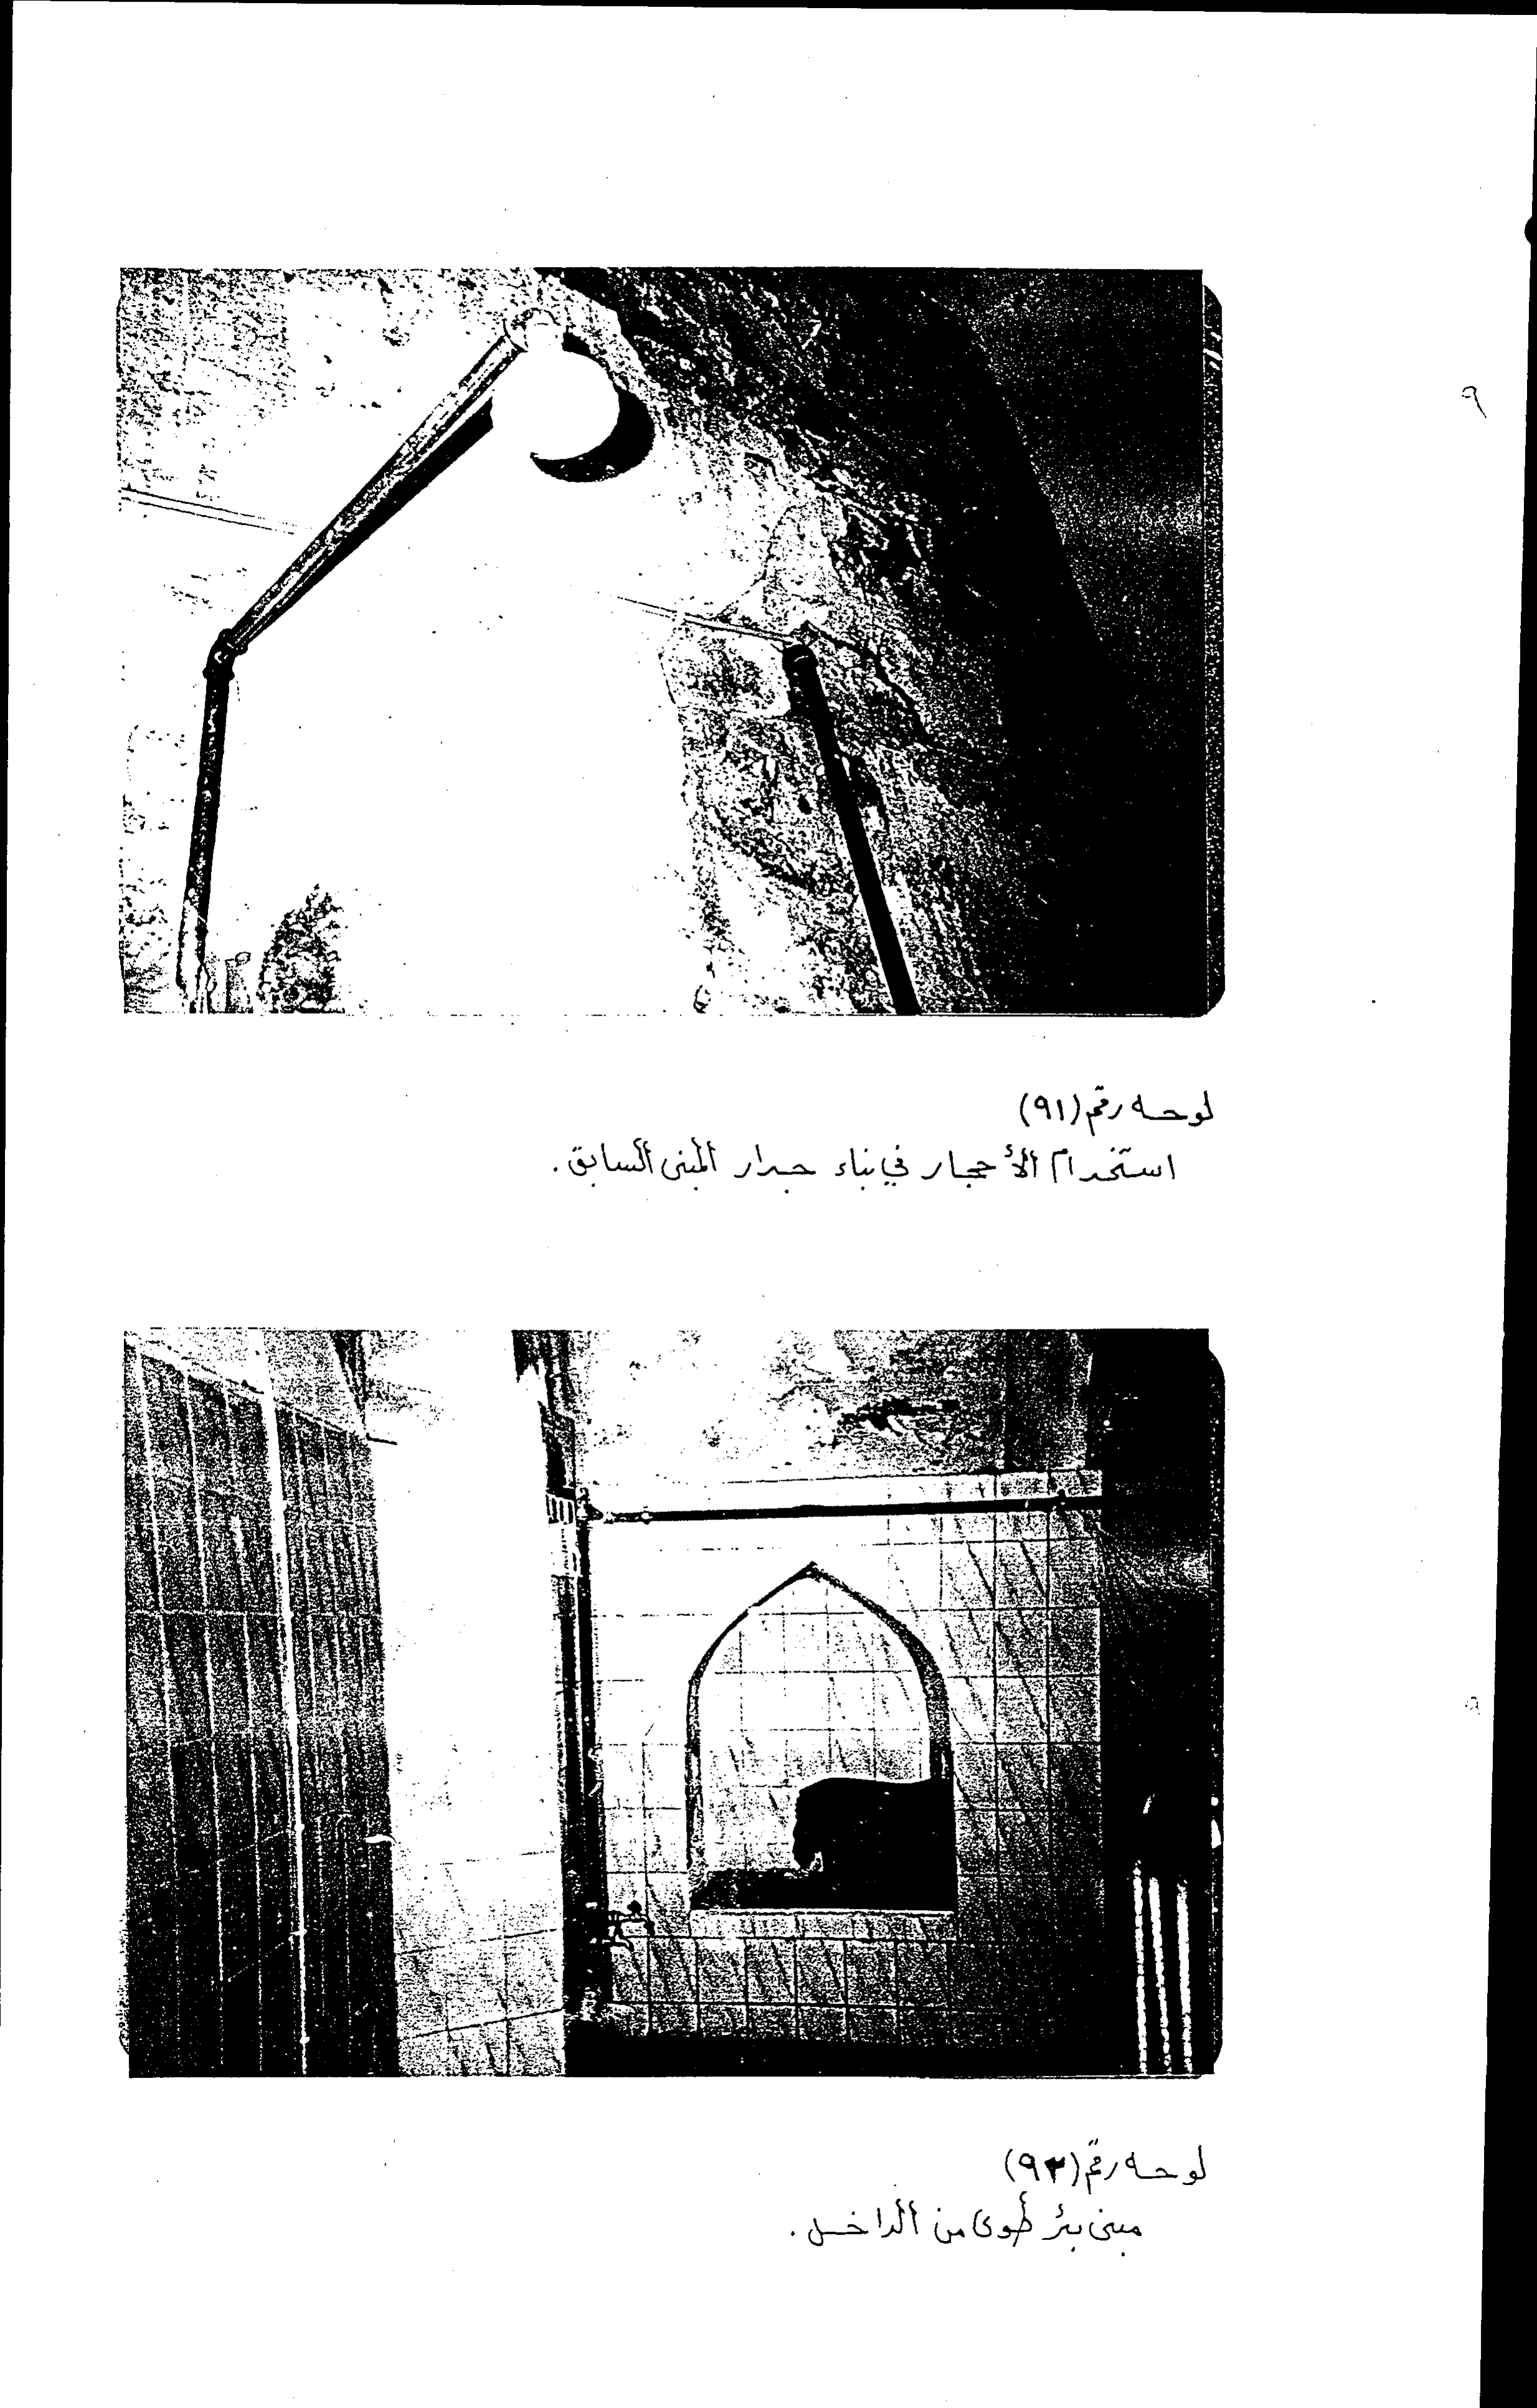 لوحه رقم (٩١)
استخدام الأحجار في بناء جدار المبنى السابق.
لوحه رقم (٩٢)
مبنى بئر طوى من الداخل.